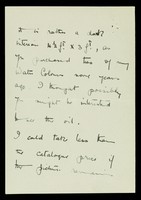 It is rather a dark
interior 4½ ft x 3 ft, as
you purchased two of my
Water Colours some years
ago I thought possibly
you might be interested
in the oil.
I could take less than
the catalogue price of
the picture.